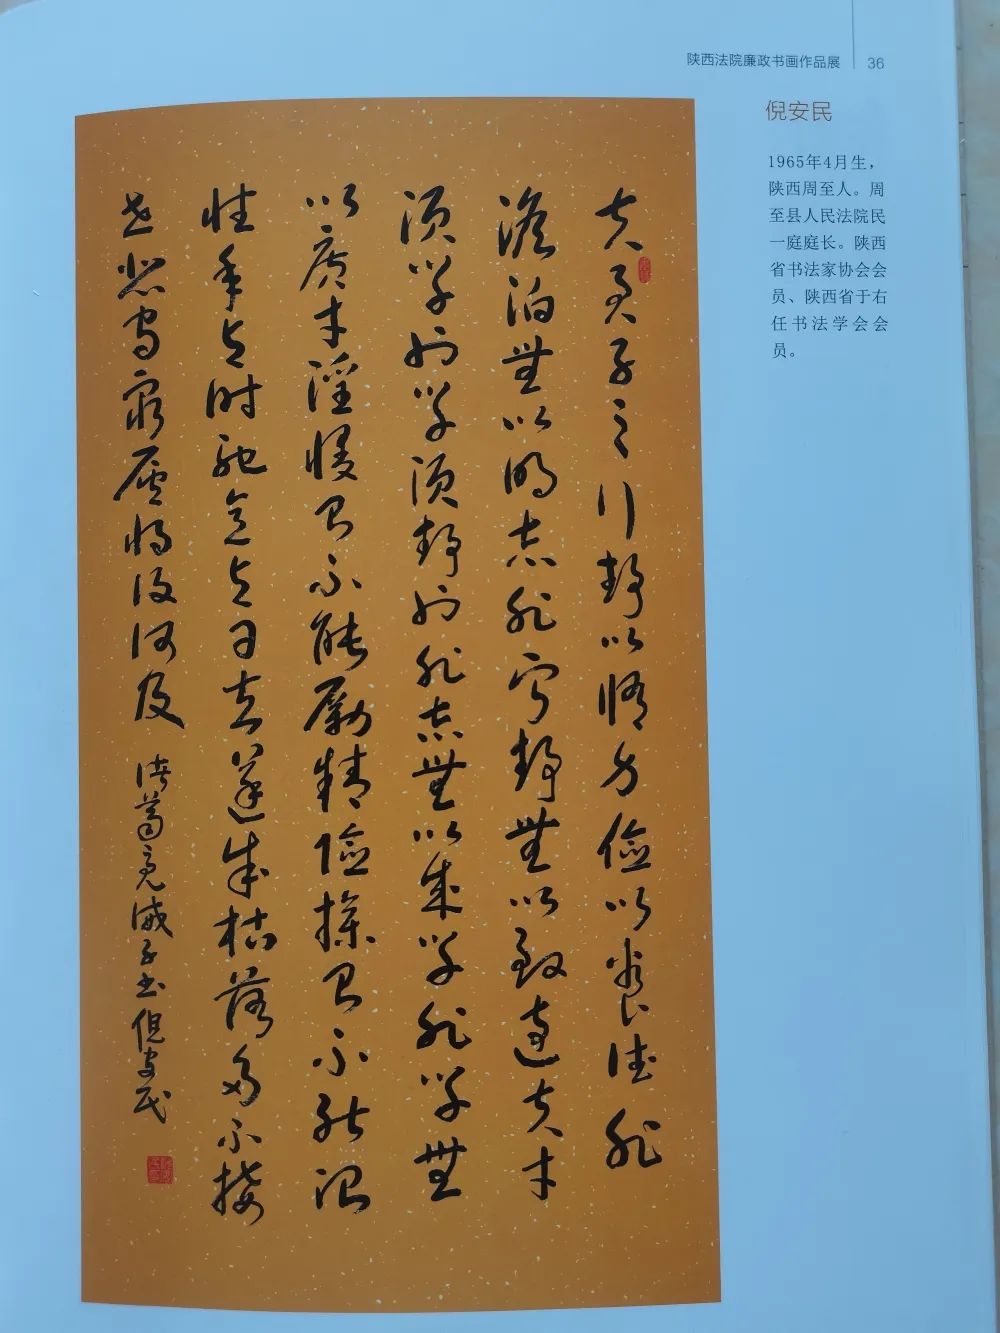 陕西法院廉政书画作品展 36
倪安民
1965年4月生，
陕西周至人。周
至县人民法院民
一庭庭长。陕西
省书法家协会会
员、陕西省于右
任书法学会会
员。
夫君子之行静以修身儉以養德非
澹泊無以明志非寧静無以致遠夫才
須学也学須静也非志無以成学非学無
以廣才淫慢則不能勵精險操則不能治
性年与時馳意与日去遂成枯落多不接
世悲守窮廬将復何及 諸葛亮誡子书倪安民